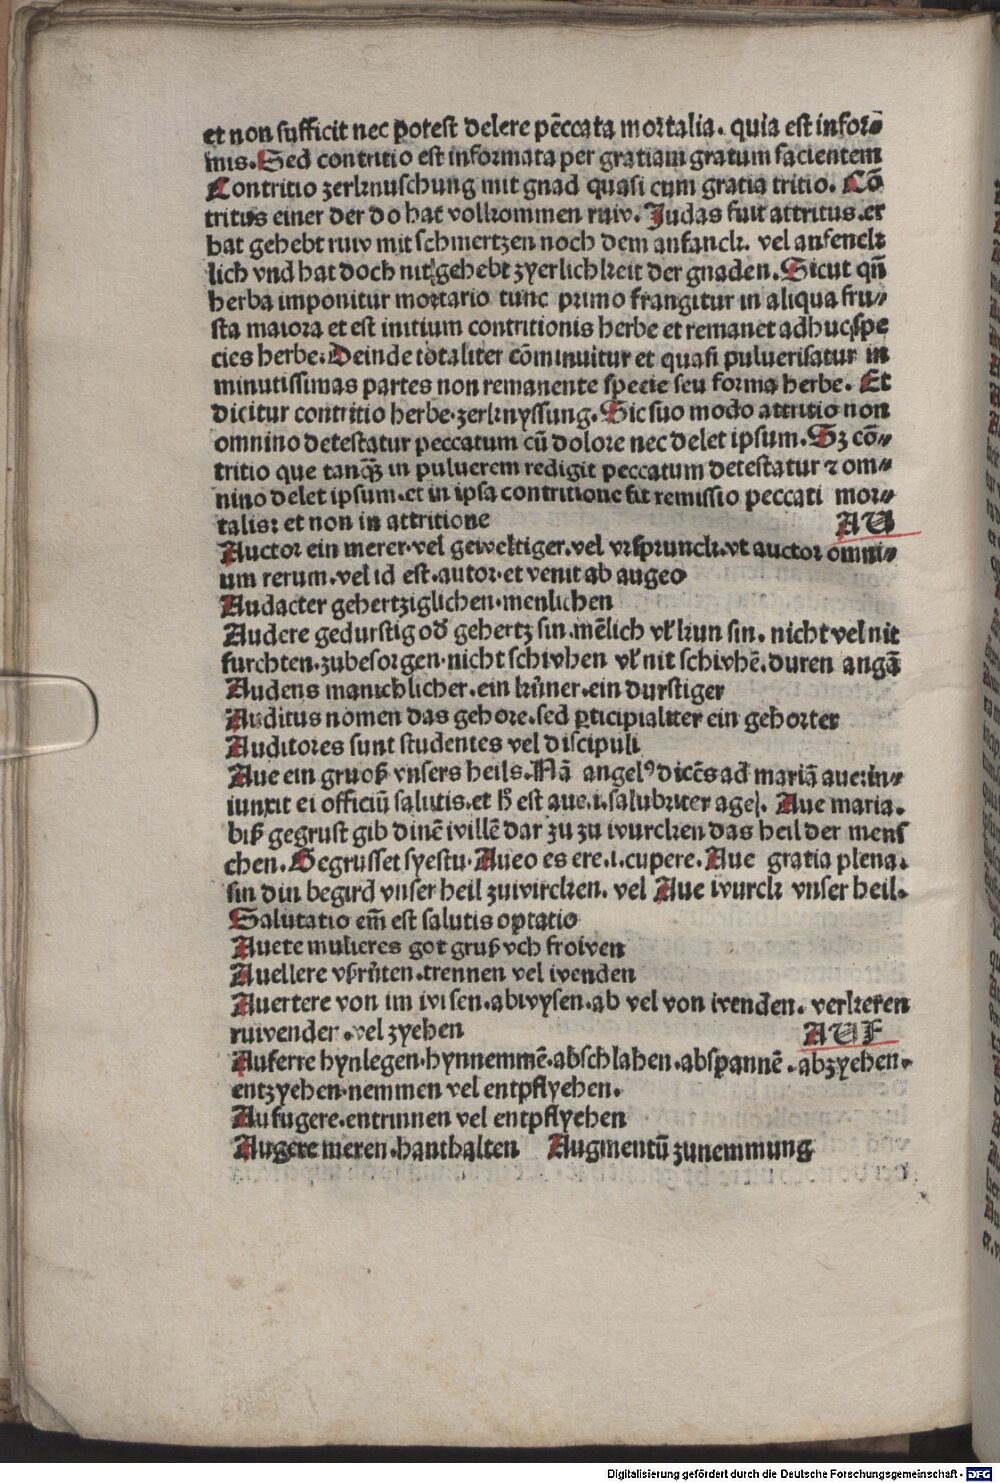 et non sufficit nec potest delere pēccata mortalia. quia est infor⸗
mis. Sed contritio est informata per gratiam gratum facientem
Contritio zerknuschung mit gnad quasi cum gratia tritio. Cō
tritus einer der do hat volkommen ruw. Judas fuit attritus. er
hat gehebt ruw mit schmertzen noch dem anfanck. vel anfenck
lich vnd hat doch nit gehebt zyerlichkeit der gnaden. Sicut qn̄
herba imponitur mortario tunc primo frangitur in aliqua fru⸗
sta maiora et est initium contritionis herbe et remanet adhuc spe
cies herbe: Deinde totaliter cōminuitur et quasi puluerisatur in
minutissimas partes non remanente specie seu forma herbe. Et
dicitur contritio herbe. zerknyssung. Sic suo modo attritio non
omnino detestatur peccatum cū dolore nec delet ipsum. Sz cō⸗
tritio que tanqȝ in puluerem redigit peccatum detestatur ⁊ om⸗
nino delet ipsum. et in ipsa contritione fit remissio peccati mor⸗
talis: et non in attritione
AU
Auctor ein merer. vel geweltiger. vel vrsprunck. vt auctor omni⸗
um rerum. vel id est. autor. et venit ab augeo
Audacter gehertziglichen. menlichen
Audere gedurstig od̄ gehertz sin. mēlich vł kun sin. nicht vel nit
furchten. zubesorgen. nicht schiwhen vł nit schiwhē. duren angā
Audens manichlicher. ein kůner. ein durstiger
Auditus nomen das gehore. sed ꝑticipialiter ein gehorter
Auditores sunt studentes vel discipuli
Aue ein gruoß vnsers heils. Nā angelꝰ dicēs ad mariā aue: in⸗
iunxit ei officiū salutis. et h̄ est aue. i. salubriter age. Aue maria.
biß gegrust gib dinē willē dar zu zu wurcken das heil der mens
chen. Gegrusset syestu. Aueo es ere. i. cupere. Aue gratia plena.
sin din begird vnser heil zuwircken. vel Aue wurck vnser heil.
Salutatio em̄ est salutis optatio
Auete mulieres got gruß vch frowen
Auellere vßrůten. trennen vel wenden
Auertere von im wisen. abwysen. ab vel von wenden. verkeren
ruwender. vel zyehen
AUF
Auferre hynlegen. hynnemmē. abschlahen. abspannē. abzyehen.
entzyehen. nemmen vel entpflyehen.
Aufugere. entrinnen vel entpflyehen
Augere meren. hanthalten Augmentū zunemmung
Digitalisierung gefördert durch die Deutsche Forschungsgemeinschaft - DFG